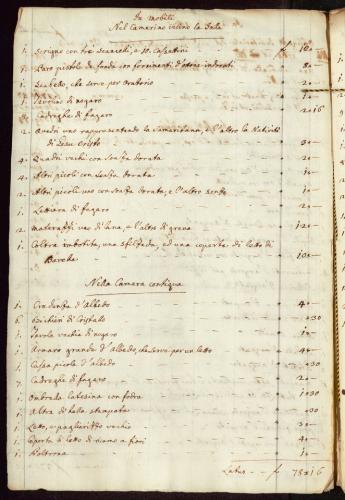 In mobili
Nel Camarino vicino la Sala
1. Scrigno con trè Scancelli, e 10. Cassettini £ 120 -
1. Paro pistole da fonda con fornimenti d'otone indorati 80 -
1. che serve per Oratorio 20 -
1. Tavolino di nogaro 10 -
Cadreghe di fagaro 20 16
2. Quadri uno rappresentando la Samaritana, e l'altro la Natività
di Gesù Cristo 30 -
4. Quadri vechi con Soasa dorata 20 -
4. Altri picoli con Soasa dorata 10 -
2. Altri picoli uno con Soasa dorata, e l'altro senza 10 -
1. Lettiera di fagaro 20 -
2. Materassi uno di lana, e l'altro di grena 120 -
1. Coltra imbotita, una sfilzada, ed una coperta di letto di
100 -
Nella Camera contigua
1. Credenza d'Albedo 40 -
6. Bichieri di Cristallo 30
1. Tavola vechia di nogaro 10 -
1. Armaro grande d'albedo, che serve per un letto 40 -
1. Cassa picola d'albedo 30
7. Cadreghe di fagaro 20 -
1. con fodra
1. Altra di tella stampata 30
1. Letto, e pagliarizzo vechio 30 -
1. Coperta di letto di a fiori 40 -
1. Poltrona 10 -
Latus £